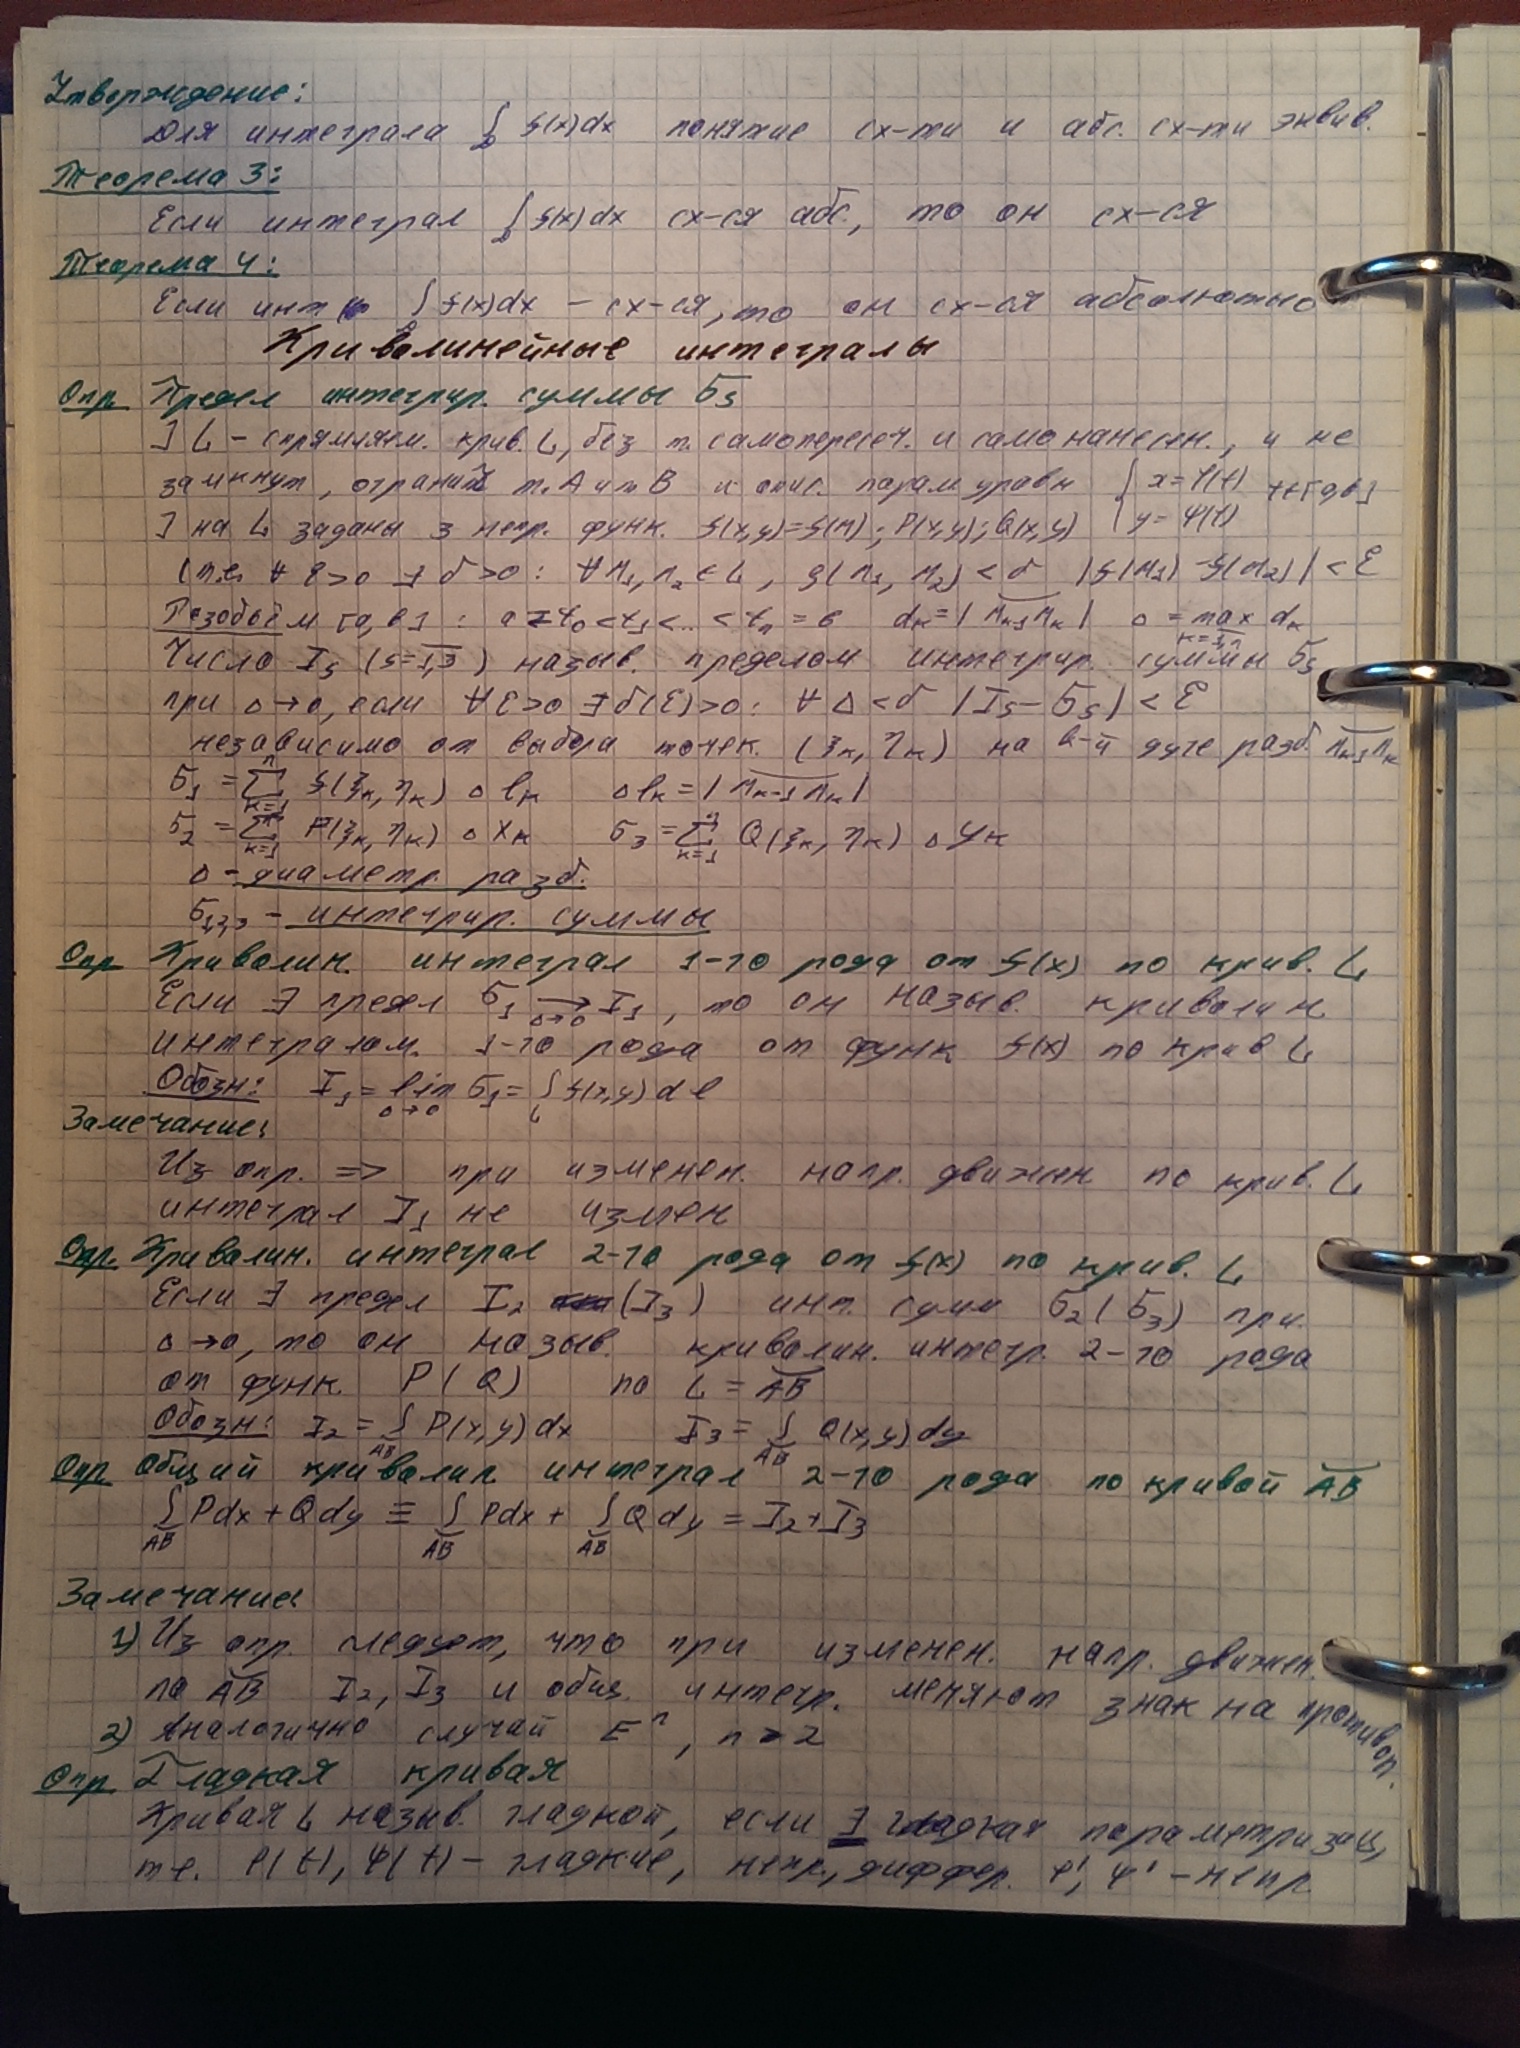 Утверждение:
Для интеграла ∫_D f(x)dx понятие сх-ти и абс. сх-ти эквив.
Теорема 3:
Если интеграл ∫_D f(x)dx сх-ся абс., то он сх-ся
Теорема 4:
Если инт ∫_D f(x)dx – сх-ся, то он сх-ся абсолютно
Криволинейные интегралы
Опр. Предел интегрир. суммы σ_s
] L – спрямляем. крив. L, без т. самопересеч. и самонанесен., и не
замкнут, огранич т. A и т B и опис. парам уравн { x=φ(t) y=ψ(t) t∈[a,b]
] на L заданы 3 непр. функ. f(x,y)=f(M); P(x,y); Q(x,y)
(т.е. ∀ε>0 ∃δ>0: ∀M₁,M₂∈L, ρ(M₁, M₂)<δ |f(M₁)-f(M₂)|<ε
Разобьём [a,b]: a=t₀<t₁<..<t_n=b d_k=|M_{k-1}M_k| Δ=max d_k k=1,n
Число I_s (s=1,3) назыв. пределом интегрир. суммы σ_s
при Δ→0, если ∀ε>0 ∃δ(ε)>0: ∀Δ<δ |I_s-σ_s|<ε
независимо от выбора точек (ξ_k, η_k) на k-й дуге разб. M_{k-1}M_k
σ₁=∑_{k=1}^n f(ξ_k, η_k) Δl_k Δl_k=|M_{k-1}M_k|
σ₂=∑_{k=1}^n P(ξ_k, η_k) Δx_k σ₃=∑_{k=1}^n Q(ξ_k, η_k) Δy_k
Δ – диаметр. разб.
σ_{1,2,3} – интегрир. суммы
Опр Криволин. интеграл 1-го рода от f(x) по крив. L
Если ∃ предел σ₁ →_{Δ→0} I₁, то он назыв. криволин.
интегралом. 1-го рода от функ f(x) по крив L
Обозн: I₁=lim_{Δ→0} σ₁=∫_L f(x,y)dl
Замечание:
Из опр. => при изменен. напр. движен. по крив. L
интеграл I₁ не измен
Опр. Криволин. интеграл 2-го рода от f(x) по крив. L
Если ∃ предел I₂ (I₃) инт. сумм σ₂(σ₃) при.
Δ→0, то он назыв. криволин. интегр. 2-го рода
от функ. P(Q) по L=AB
Обозн: I₂=∫_{AB} P(x,y)dx I₃=∫_{AB} Q(x,y)dy
Опр Общий криволин. интеграл 2-го рода по кривой AB
∫_{AB} Pdx+Qdy ≡ ∫_{AB} Pdx + ∫_{AB} Qdy = I₂+I₃
Замечание:
1) Из опр. следует, что при изменен. напр. движен.
по AB I₂, I₃ и общ. интегр. меняют знак на противоп.
2) Аналогично случай Eⁿ, n>2
Опр. Гладкая кривая
Кривая L назыв. гладкой, если ∃ гладкая параметризац,
т.е. φ(t), ψ(t) – гладкие, непр., диффер. φ', ψ' – непр.